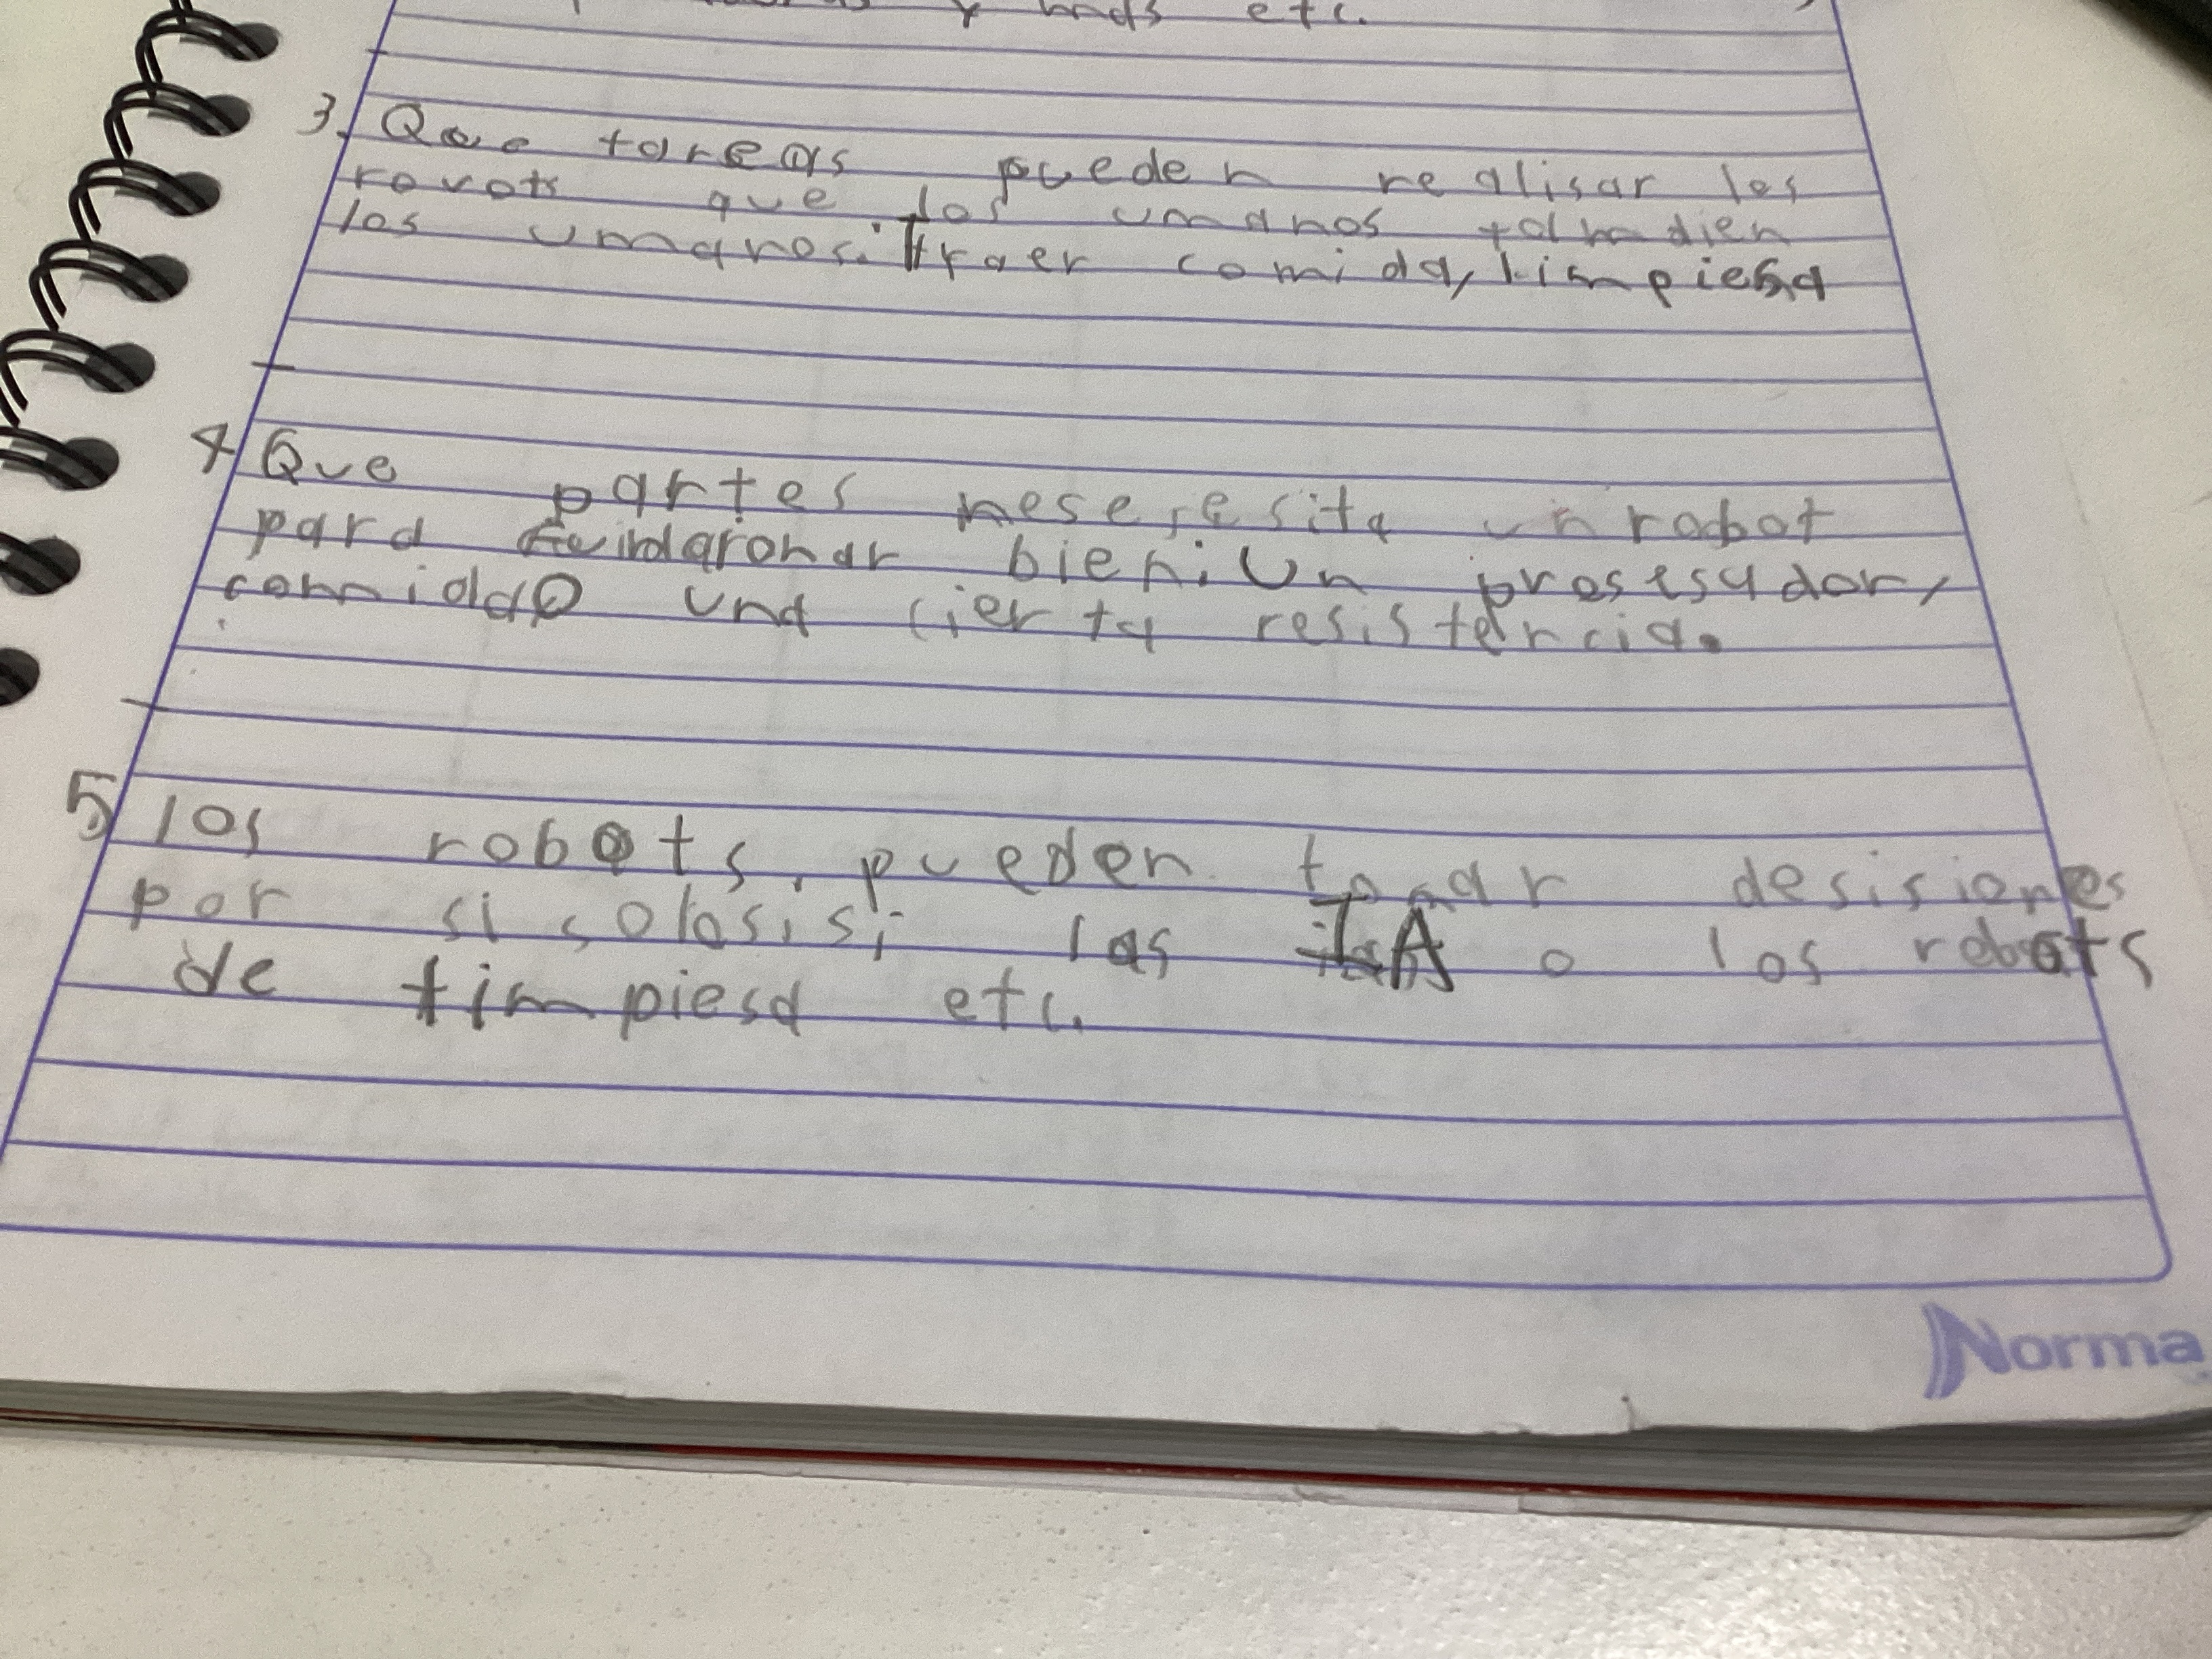 y mas etc.
3. Que tareas pueden realisar los
rovots que los umanos tambien
los umanos: Traer comida, limpiesa
4 Que partes nese,esita un robot
para bien: Un prosesador,
comida O una cierta resistencia.
5 los robots, pueden tomar desisiones
por si solos: si; las IA o los robots
de limpiesa etc.
Norma